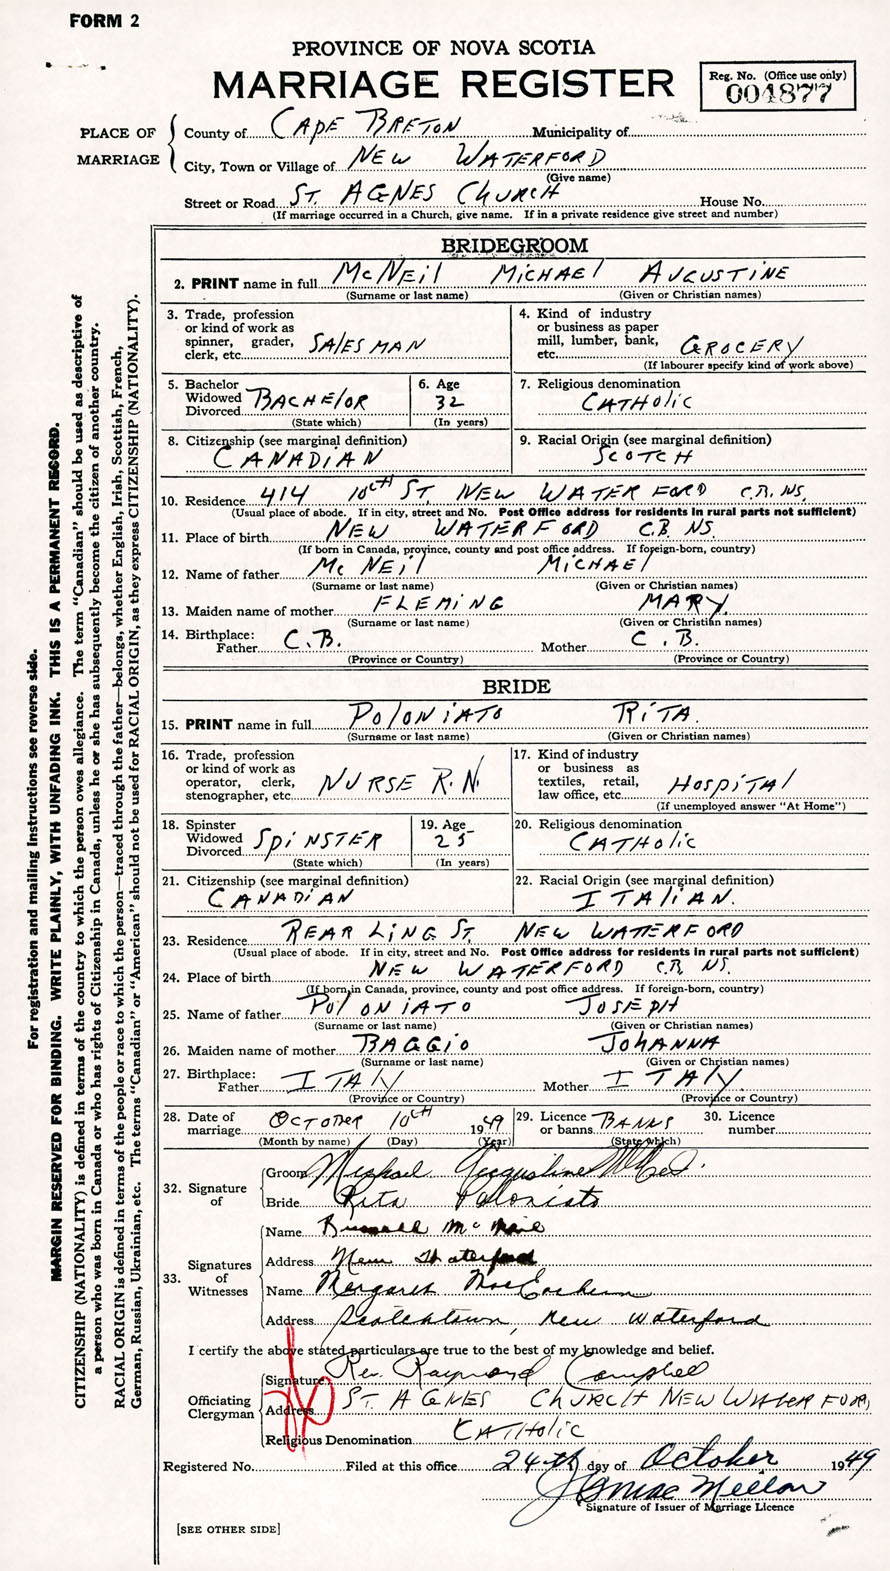 FORM 2
PROVINCE OF NOVA SCOTIA
MARRIAGE REGISTER
Reg. No. (Office use only)
004877
PLACE OF MARRIAGE
County of CAPE BRETON Municipality of
City, Town or Village of NEW WATERFORD
(Give name)
Street or Road ST. AGNES CHURCH House No.
(If marriage occurred in a Church, give name. If in a private residence give street and number)
BRIDEGROOM
2. PRINT name in full McNEil MICHAEl AUGUSTINE
(Surname or last name) (Given or Christian names)
3. Trade, profession
or kind of work as
spinner, grader,
clerk, etc. SAlESMAN
4. Kind of industry
or business as paper
mill, lumber, bank,
etc. GROCERY
(If labourer specify kind of work above)
5. Bachelor
Widowed
Divorced BACHElOR
(State which)
6. Age
32
(In years)
7. Religious denomination
CATHOlic
8. Citizenship (see marginal definition)
CANADiAN
9. Racial Origin (see marginal definition)
SCOTCH
10. Residence 414 10th ST. NEW WATERFORD C.B. NS.
(Usual place of abode. If in city, street and No. Post Office address for residents in rural parts not sufficient)
11. Place of birth NEW WATERFORD C.B. NS.
(If born in Canada, province, county and post office address. If foreign-born, country)
12. Name of father McNEil MICHAEl
(Surname or last name) (Given or Christian names)
13. Maiden name of mother FLEMiNG MARY.
(Surname or last name) (Given or Christian names)
14. Birthplace:
Father C.B. Mother C.B.
(Province or Country) (Province or Country)
BRIDE
15. PRINT name in full POloNiATO RiTA.
(Surname or last name) (Given or Christian names)
16. Trade, profession
or kind of work as
operator, clerk,
stenographer, etc. NURSE R.N.
17. Kind of industry
or business as
textiles, retail,
law office, etc. HOSPiTAl
(If unemployed answer "At Home")
18. Spinster
Widowed
Divorced SPiNSTER
(State which)
19. Age
25
(In years)
20. Religious denomination
CATHOlic
21. Citizenship (see marginal definition)
CANADiAN
22. Racial Origin (see marginal definition)
ITAliAN.
23. Residence REAR LiNG ST. NEW WATTERFORD
(Usual place of abode. If in city, street and No. Post Office address for residents in rural parts not sufficient)
24. Place of birth NEW WATERFORD C.B. NS.
(If born in Canada, province, county and post office address. If foreign-born, country)
25. Name of father POlONiATO JOSEPH
(Surname or last name) (Given or Christian names)
26. Maiden name of mother BAGGiO JOHANNA
(Surname or last name) (Given or Christian names)
27. Birthplace:
Father ITAlY Mother ITAlY.
(Province or Country) (Province or Country)
28. Date of
marriage OCTOBER 10th 1949
(Month by name) (Day) (Year)
29. Licence
or banns BANNS
(State which)
30. Licence
number
32. Signature of
Groom Michael Augustine McNeil.
Bride Rita Poloniato
33. Signatures of Witnesses
Name McNeil
Address New Waterford
Name Margaret MacEachern
Address Scotchtown, New Waterford
I certify the above stated particulars are true to the best of my knowledge and belief.
Officiating Clergyman
Signature Rev. Raymond Campbell
Address ST. AGNES CHURCH NEW WATERFORD
Religious Denomination CATHOlic
Registered No. Filed at this office 24th day of October 1949
Signature of Issuer of Marriage Licence
[SEE OTHER SIDE]
For registration and mailing instructions see reverse side.
MARGIN RESERVED FOR BINDING. WRITE PLAINLY, WITH UNFADING INK. THIS IS A PERMANENT RECORD.
CITIZENSHIP (NATIONALITY) is defined in terms of the country to which the person owes allegiance. The term "Canadian" should be used as descriptive of
a person who was born in Canada or who has rights of Citizenship in Canada, unless he or she has subsequently become the citizen of another country.
RACIAL ORIGIN is defined in terms of the people or race to which the person—traced through the father—belongs, whether English, Irish, Scottish, French,
German, Russian, Ukrainian, etc. The terms "Canadian" or "American" should not be used for RACIAL ORIGIN, as they express CITIZENSHIP (NATIONALITY).